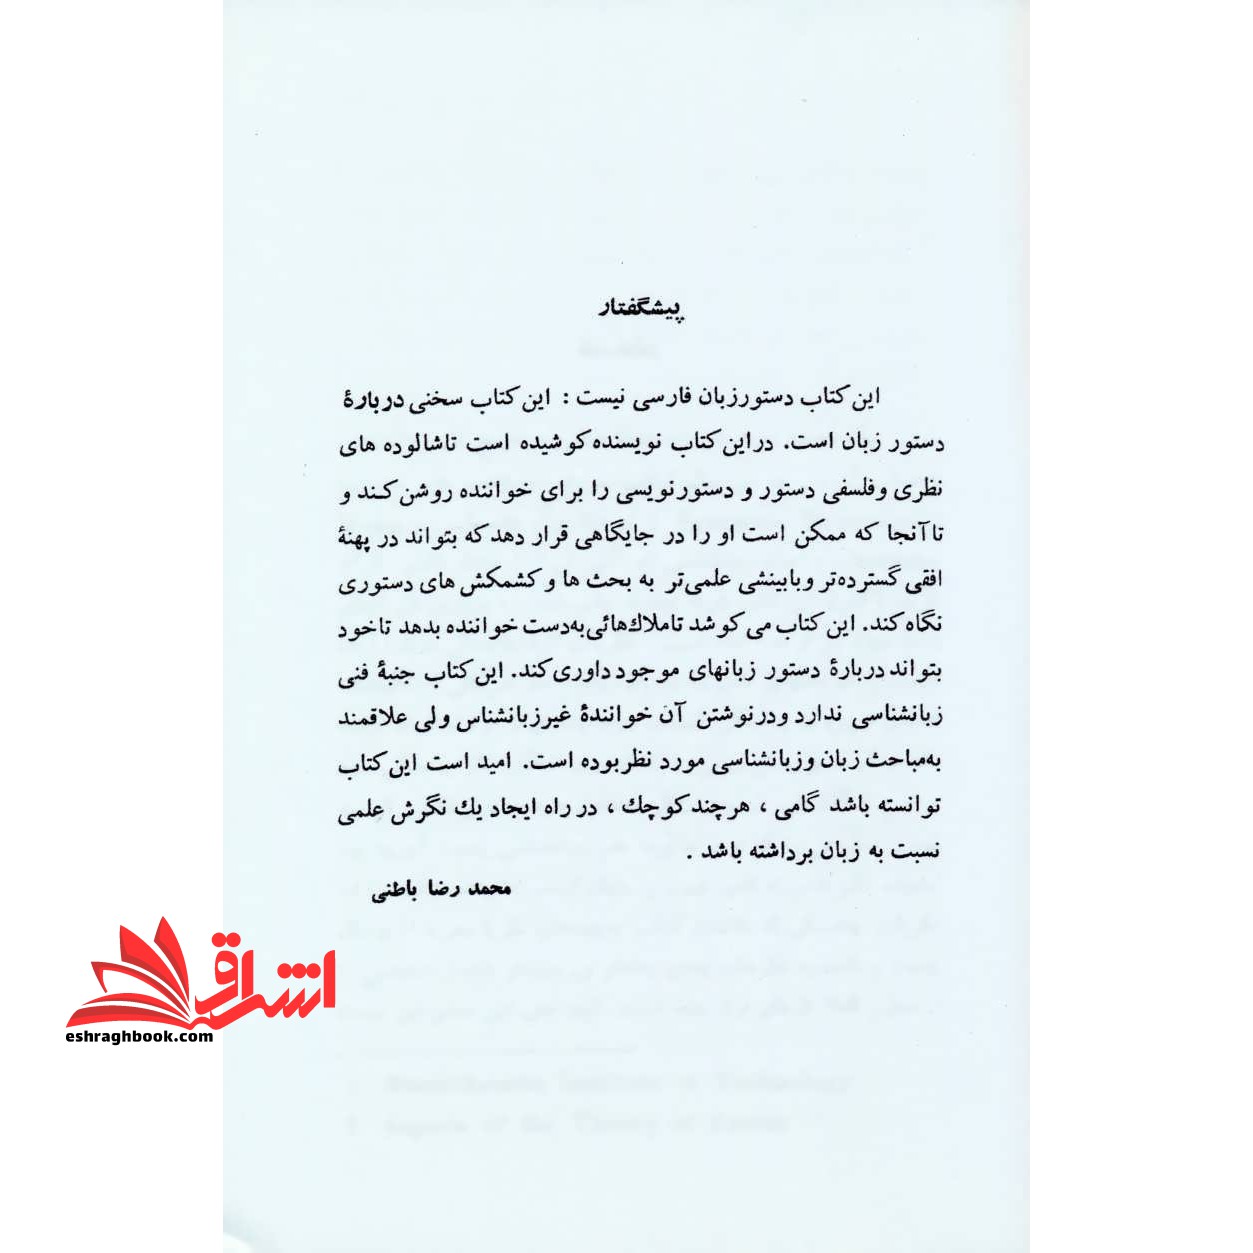 پیشگفتار
این کتاب دستور زبان فارسی نیست : این کتاب سخنی دربارهٔ
دستور زبان است. در این کتاب نویسنده کوشیده است تا شالوده های
نظری و فلسفی دستور و دستورنویسی را برای خواننده روشن کند و
تا آنجا که ممکن است او را در جایگاهی قرار دهد که بتواند در پهنهٔ
افقی گسترده‌تر و با بینشی علمی‌تر به بحث ها و کشمکش های دستوری
نگاه کند. این کتاب می کوشد تا ملاک‌هائی به‌دست خواننده بدهد تا خود
بتواند دربارهٔ دستور زبانهای موجود داوری کند. این کتاب جنبهٔ فنی
زبانشناسی ندارد و در نوشتن آن خوانندهٔ غیرزبانشناس ولی علاقمند
به‌مباحث زبان و زبانشناسی مورد نظر بوده است. امید است این کتاب
توانسته باشد گامی ، هرچند کوچک ، در راه ایجاد یک نگرش علمی
نسبت به زبان برداشته باشد .
محمد رضا باطنی
اشراق
eshraghbook.com